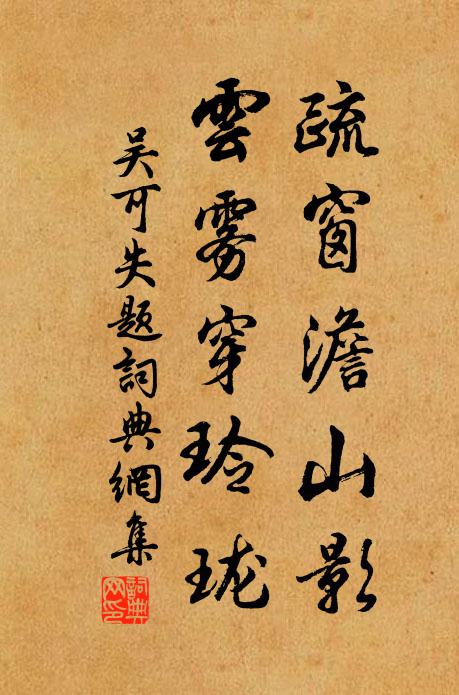 疏窗澹山影
雲雾穿玲珑
吴可失题詞典網集
詞典网印